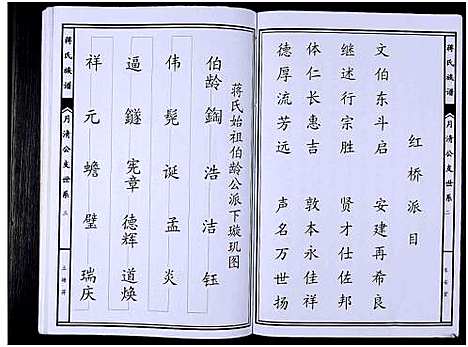 红桥派目
文伯东斗启　安建再希良
继述行宗胜　贤才佐邦
体仁长惠吉　敦本永佳祥
德厚流芳远　声名万世扬
蒋氏族谱
月清公支世系
二
蒋氏始祖伯龄公派下璇玑图
伯龄　鍧　浩　洁　钰
伟　髡　诞　孟　炎
逼　鐩　宪章　德辉　道焕
祥　元　蟾　璧　瑞庆
蒋氏族谱
月清公支世系
三